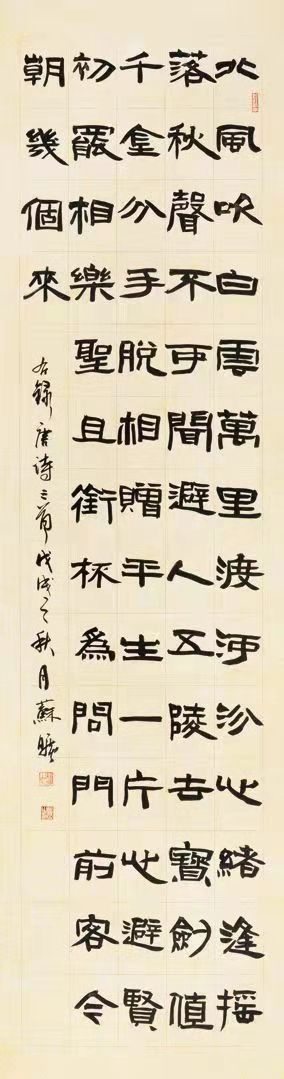 北風吹白雲萬里渡河汾心緒逢搖
落秋聲不可聞避人五陵去寶劍值
千金分手脫相贈平生一片心避賢
初罷相樂聖且銜杯爲問門前客今
朝幾個來
右錄唐詩三首戊戌之秋月蘇